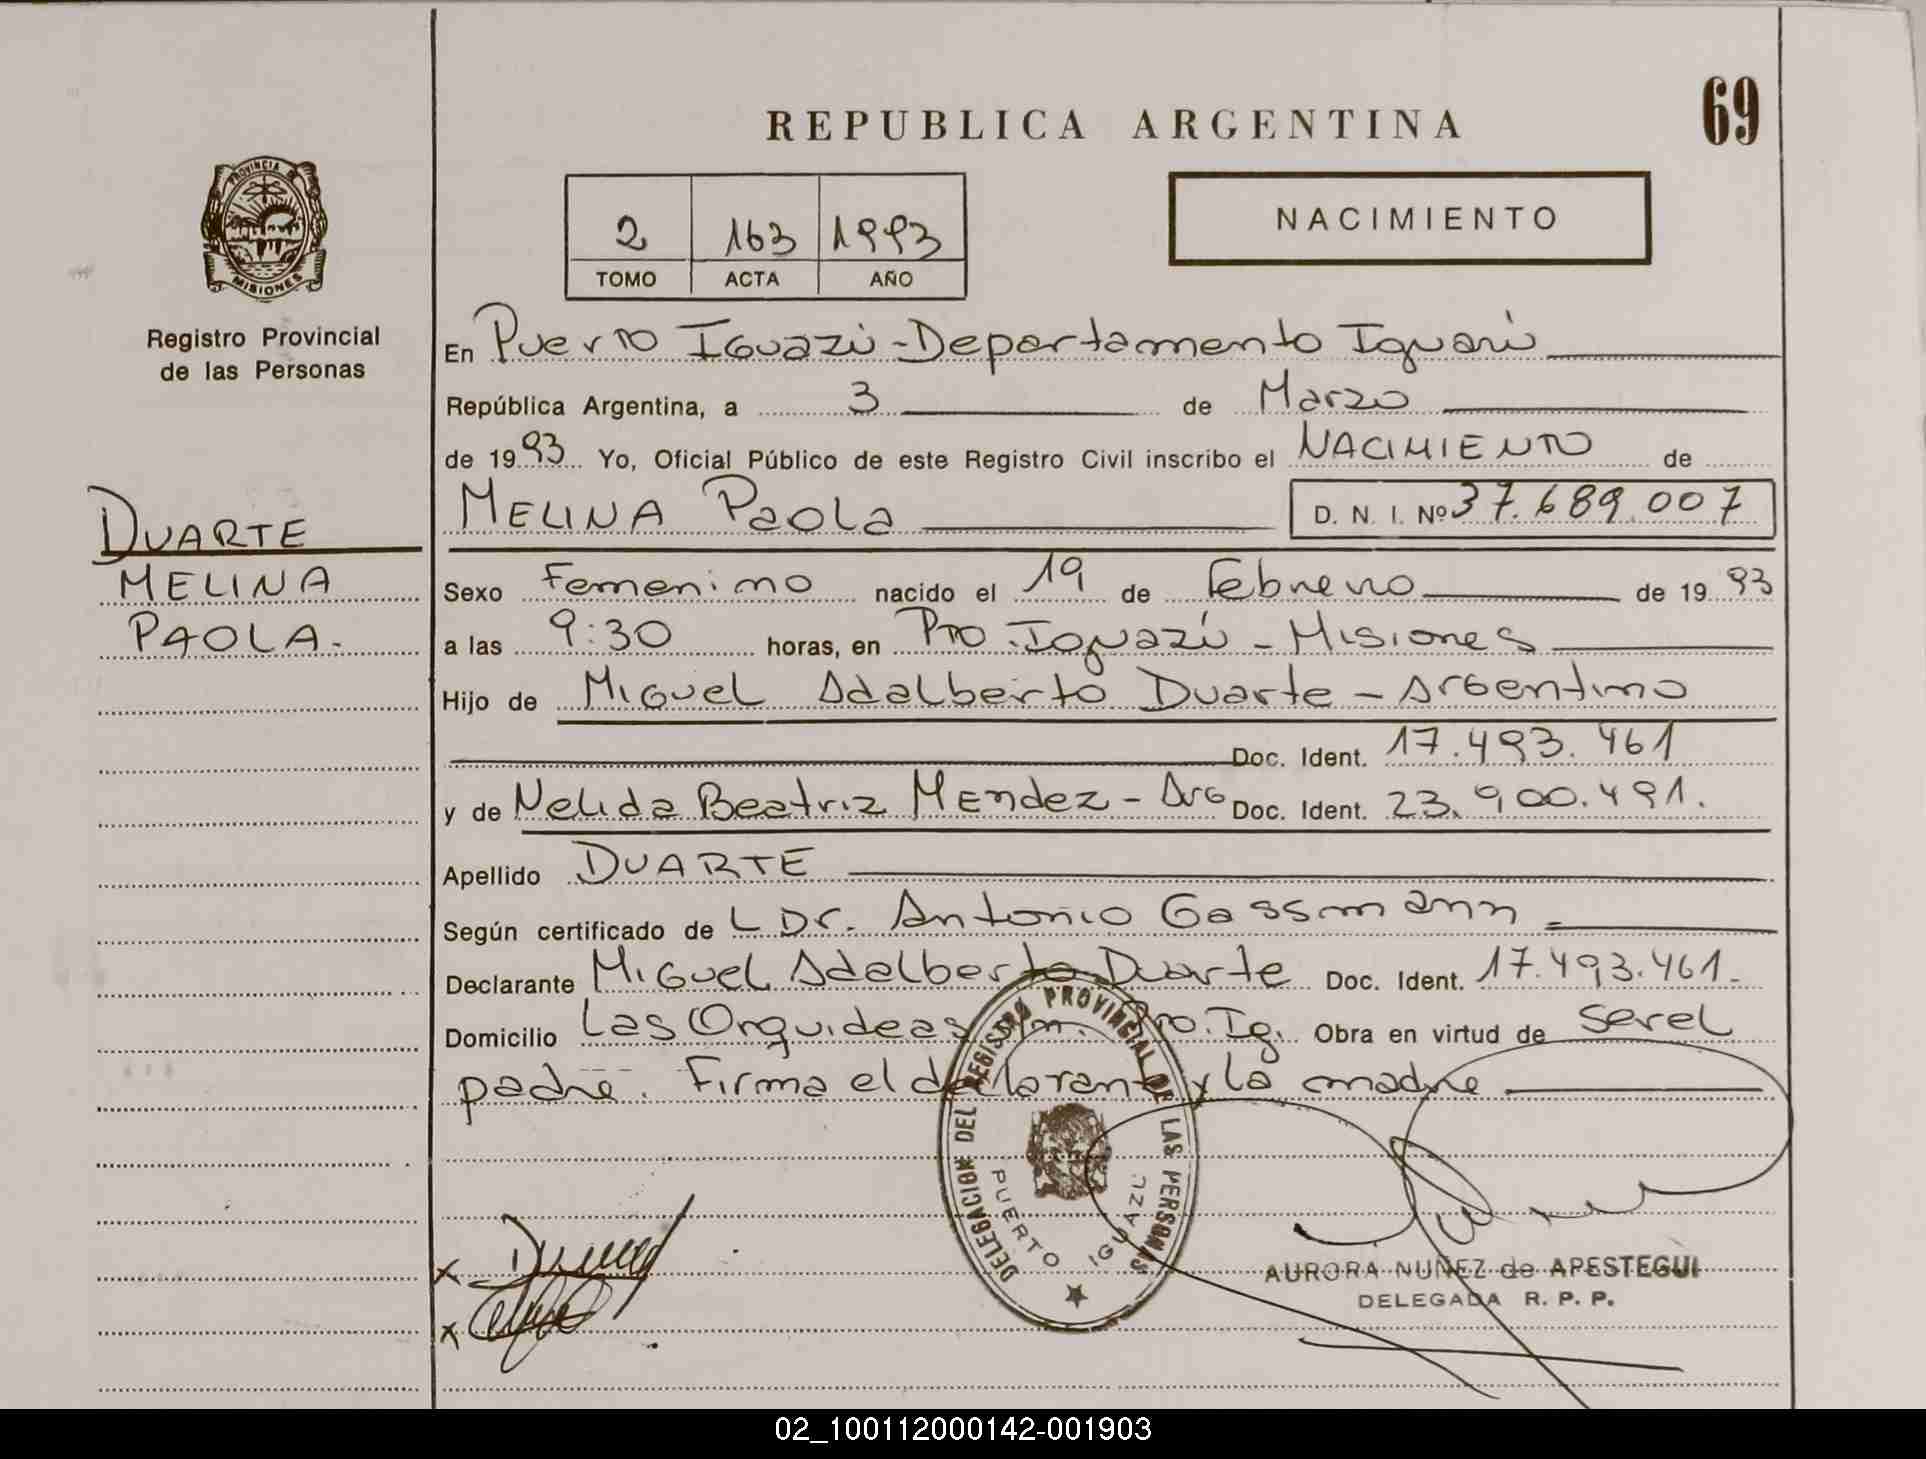 REPUBLICA ARGENTINA
69
PROVINCIA DE
MISIONES
Registro Provincial
de las Personas
2 163 1993
TOMO ACTA AÑO
NACIMIENTO
En Puerto Iguazú - Departamento Iguazú
República Argentina, a 3 de Marzo
de 1993 Yo, Oficial Público de este Registro Civil inscribo el NACIMIENTO de
MELINA Paola D. N. I. Nº 37.689.007
DUARTE
MELINA
PAOLA.
Sexo Femenino nacido el 19 de Febrero de 1993
a las 9:30 horas, en Pto. Iguazú - Misiones
Hijo de Miguel Adalberto Duarte - Argentino
Doc. Ident. 17.493.461
y de Nelida Beatriz Mendez - Arg Doc. Ident. 23.900.491.
Apellido DUARTE
Según certificado de L Dr. Antonio Gassmann
Declarante Miguel Adalberto Duarte Doc. Ident. 17.493.461.
Domicilio Las Orquideas Pto. Ig. Obra en virtud de serel
padre. Firma el declarante y la madre
DELEGACION DEL REGISTRO PROVINCIAL DE LAS PERSONAS
PUERTO IGUAZU
x
x
AURORA NUÑEZ de APESTEGUI
DELEGADA R. P. P.
02_100112000142-001903